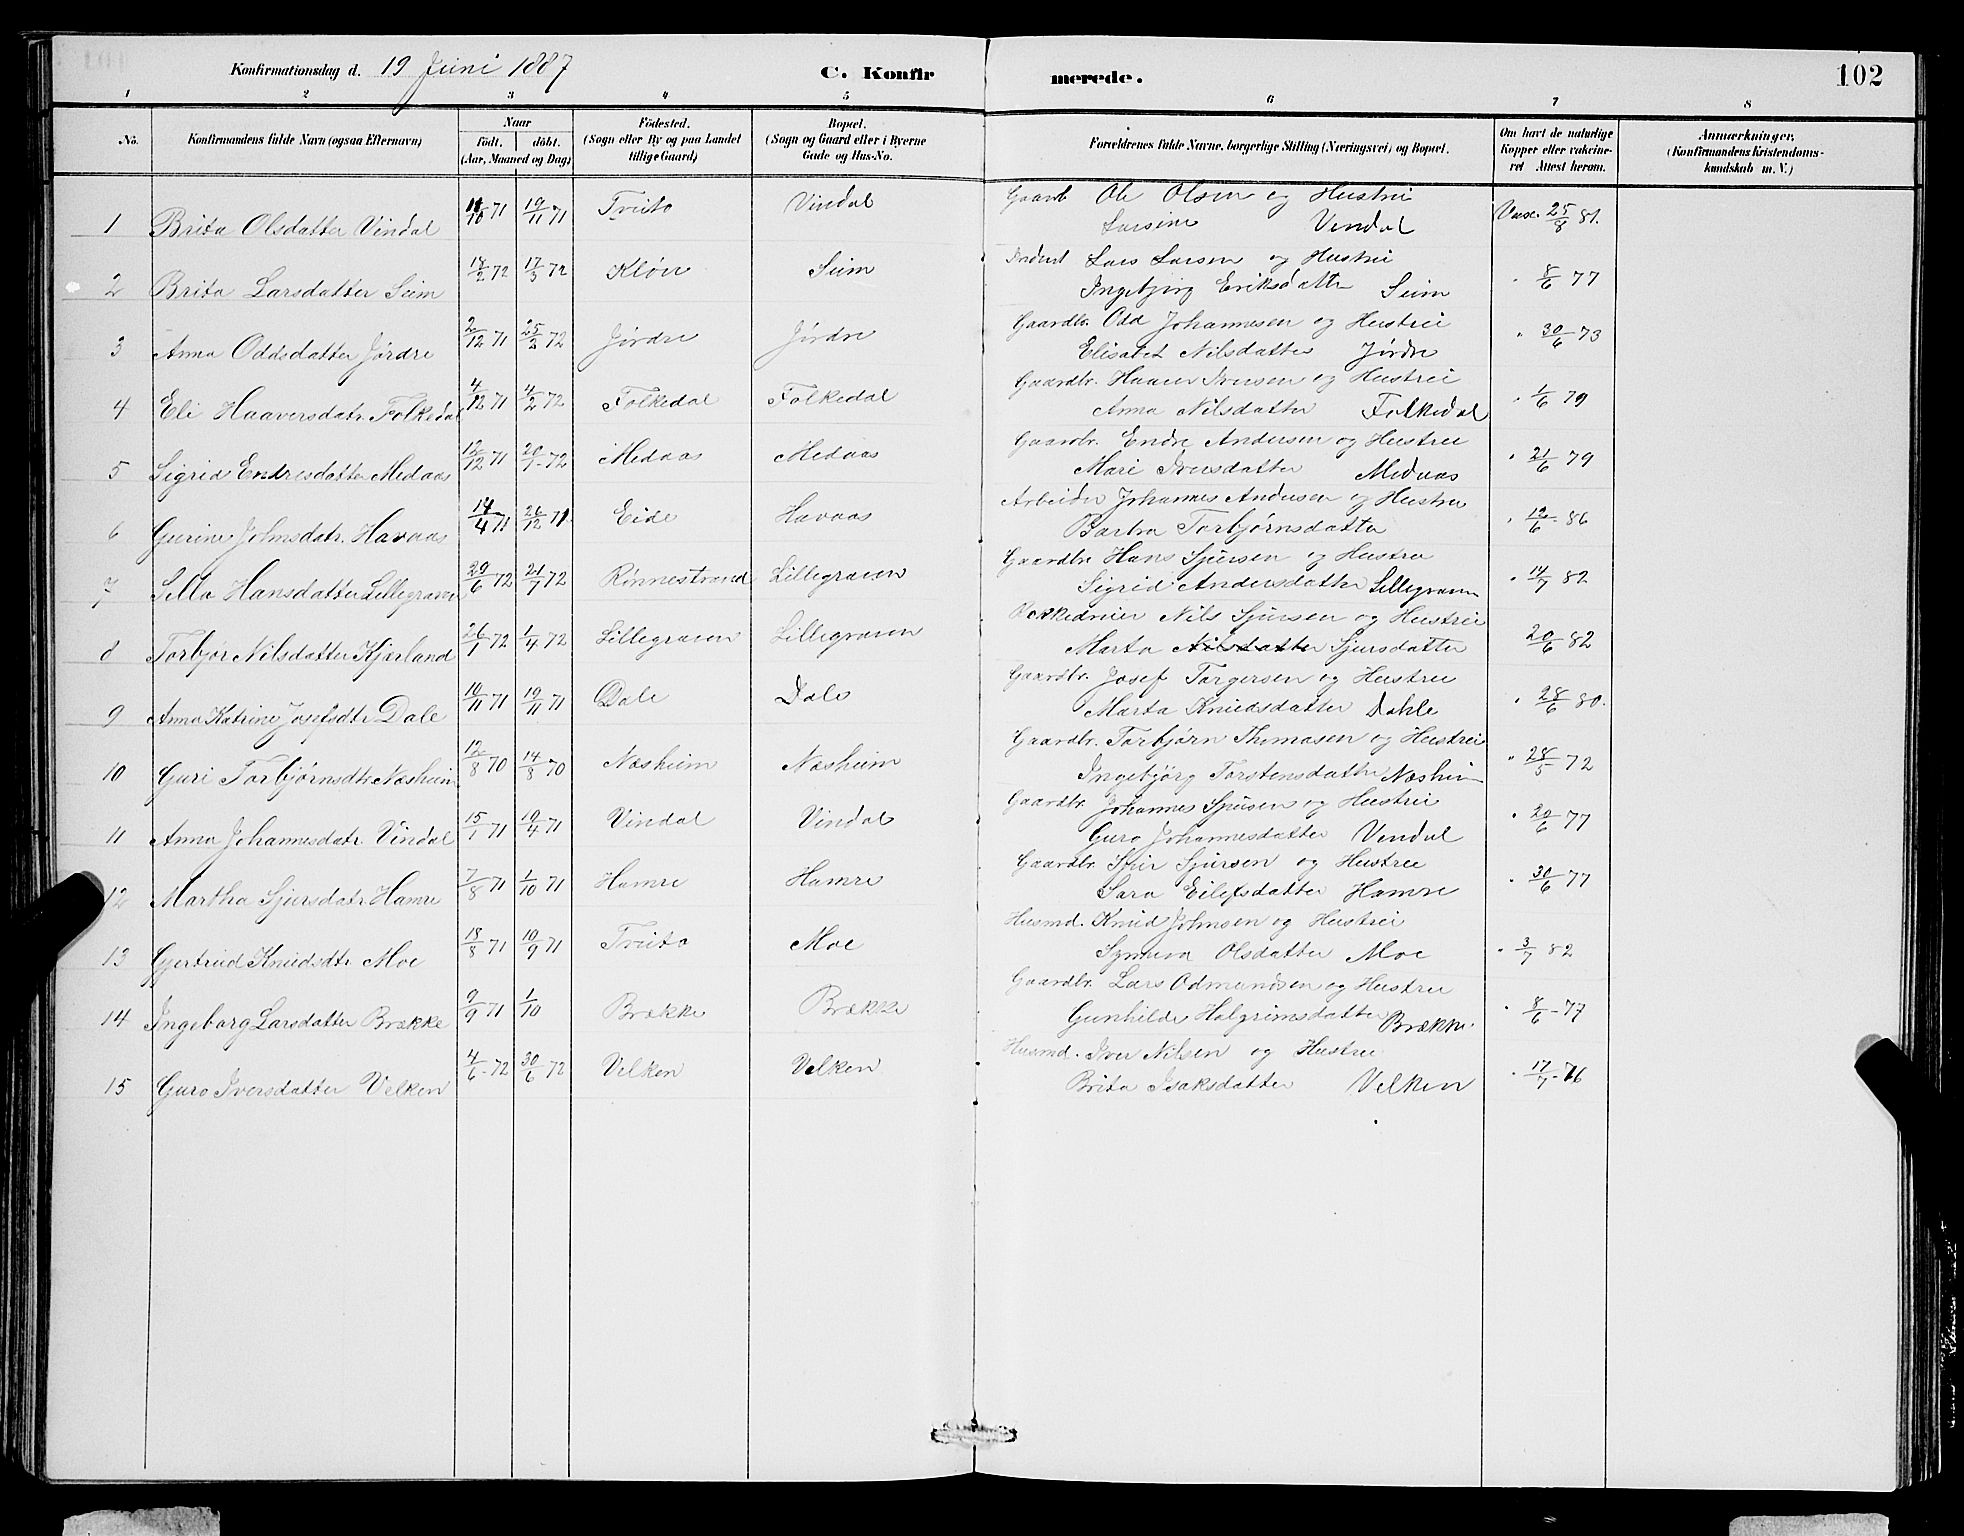 Konfirmationsdag d. 19 Juni 1887 C. Konfir merede. 102
1 2 3 4 5 6 7 8
No. Konfirmandens fulde Navn (ogsaa Efternavn) Naar födt. döbt. (Aar, Maaned og Dag) Födested. (Sogn eller By og paa Landet tillige Gaard) Bopæl. (Sogn og Gaard eller i Byerne Gade og Hus-No. Forældrenes fulde Navne, borgerlige Stilling (Næringsvei) og Bopæl. Om havt de naturlige Kopper eller vakcineret Attest herom. Anmærkninger. (Konfirmandens Kristendomskundskab m. V.)
1 Brita Olsdatter Vindal 11/10 71 19/11 71 Tveito Vindal Gaardb Ole Olsen og Hustru
Larsine Vendal Vaxc. 25/8 81.
2 Brita Larsdatter Seim 18/2 72 17/3 72 Kløve Seim Lars Larsen og Hustru
Ingebjørg Eriksdatter Seim " 8/6 77
3 Anna Oddsdatter Jørdre 2/12 71 25/2 72 Jørdre Jørdre Gaardbr. Odd Johannesen og Hustru
Elisabet Nilsdatter Jørdre " 30/6 73
4 Eli Haaversdatr. Folkedal 4/12 71 4/2 72 Folkedal Folkedal Gaardbr. Haaver Iversen og Hustru
Anna Nilsdatter Folkedal " 1/6 79
5 Sigrid Endresdatter Medaas 12/12 71 20/1 72 Medaas Medaas Gaardbr. Endre Andersen og Hustru
Mari Iversdatter Medaas " 21/6 79
6 Gurine Johnsdatr. Havaas 14/4 71 26/12 71. Eide Havaas Arbeider Johannes Andersen og Hustru
Barbra Torbjørnsdatter " 12/6 86
7 Sella Hansdatter Lillegraven 29/6 72 21/7 72 Rønnestrand Lillegraven Gaardbr Hans Sjursen og Hustru
Sigrid Andersdatter Lillegraven " 14/7 82
8 Torbjør Nilsdatter Kjærland 26/1 72 1/4 72 Lillegraven Lillegraven Nils Sjursen og Hustru
Marta Nilsdatter Sjursdatter 20/6 82
9 Anna Katrine Josefsdtr Dale 10/11 71 19/11 71 Dale Dale Gaardbr. Josef Torgersen og Hustru
Marta Knudsdatter Dahle " 28/6 80.
10 Guri Torbjørnsdtr Næsheim 12/8 70 14/8 70 Næsheim Næsheim Gaardbr. Torbjørn Thomasen og Hustru
Ingebjørg Torstensdatter Næsheim " 28/5 72
11 Anna Johannesdatr. Vindal 15/1 71 19/4 71 Vindal Vindal Gaardbr. Johannes Sjursen og Hustru
Guro Johannesdatter Vendal " 20/6 77
12 Martha Sjursdatr. Hamre 7/8 71 1/10 71 Hamre Hamre Gaardbr. Sjur Sjursen og Hustru
Sara Eilefsdatter Hamre " 30/6 77
13 Gjertrud Knudsdtr. Moe 18/8 71 10/9 71 Tveito Moe Husmd. Knud Johnsen og Hustru
Synneva Olsdatter Moe " 3/7 82
14 Ingeborg Larsdatter Brække 9/9 71 1/10 Brække Brække Gaardbr. Lars Odmundsen og Hustru
Gunhilde Halgrimsdatter Brække. " 8/6 77
15 Guro Iversdatter Velken 4/6 72 30/6 72 Velken Velken Husmd. Iver Nilsen og Hustru
Brita Isaksdatter Velken " 17/7 76